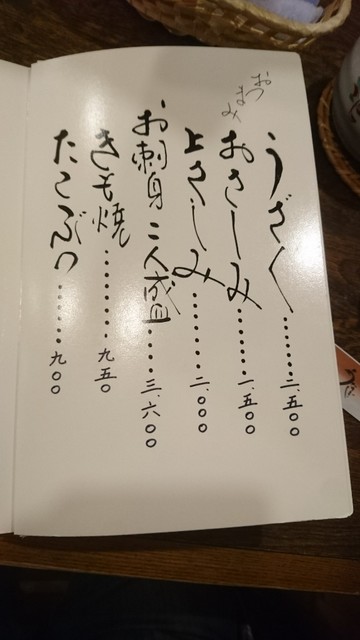 おつまみ
うざく………二、五〇〇
おさしみ………一、五〇〇
上さしみ………二、〇〇〇
お刺身二人盛………三、六〇〇
きも焼………九五〇
たこぶつ………九〇〇